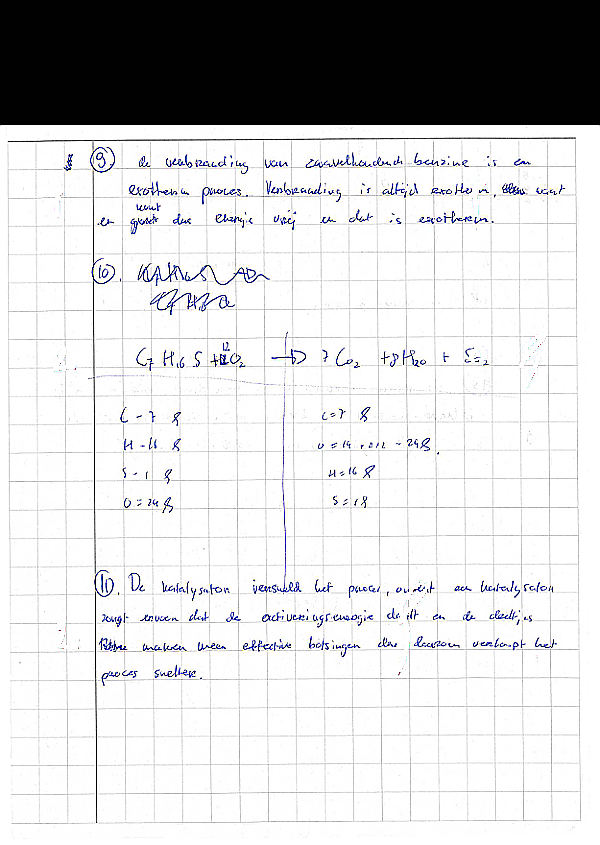 9) de verbranding van zwavelhoudende benzine is en
exotherm proces. Verbranding is altijd exotherm, want
want
er dus energie vrij en dat is exotherm.
10).
C7 H16 S + 12 O2 → 7 CO2 + 8 H2O + SO2
C - 7
H - 16
S - 1
O = 24
C = 7
O = 14 + 8 + 2 - 24
H = 16
S = 1
11). De katalysator versneld het proces, omdat een katalysator
zorgt ervoor dat de activeringsenergie daalt en de deeltjes
maken meer effective botsingen dus daarom verloopt het
proces sneller.